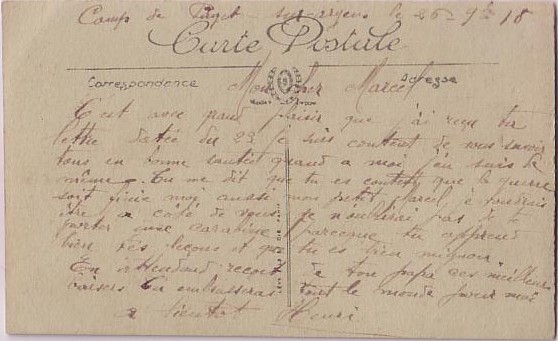 Camp de Puget-sur-argens le 26-9bre 18
Carte Postale
Correspondance Adresse
Mon cher Marcel
C'est avec grand plaisir que j'ai reçu ta
lettre datée du 23 je suis content de vous savoir
tous en bonne santée quand a moi j'en suis de
même. Tu me dit que tu es content que la guerre
soit finie moi aussi mon petit Marcel, je voudrais
être a coté de vous je n'oublirai pas de te
porter une carabine parceque tu apprend
bien tes leçons et que tu es bien mignon.
En attendant reçoit de ton papa ces meilleurs
baisers Tu embrasseras tout le monde pour moi
a bientot Henri